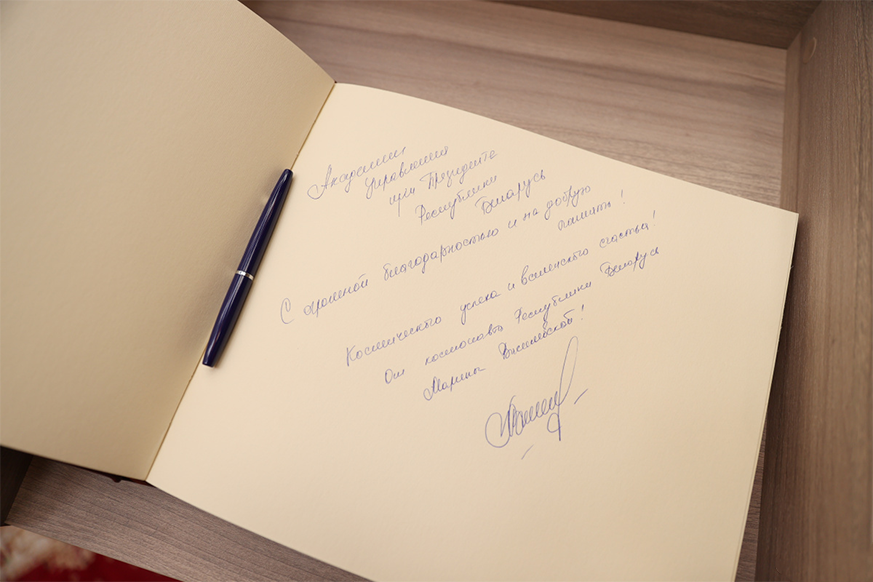 Академии
управления
при Президенте
Республики
Беларусь
С огромной благодарностью и на добрую
память!
Космического успеха и вселенского счастья!
От космонавта Республики Беларусь
Марины Василевской!